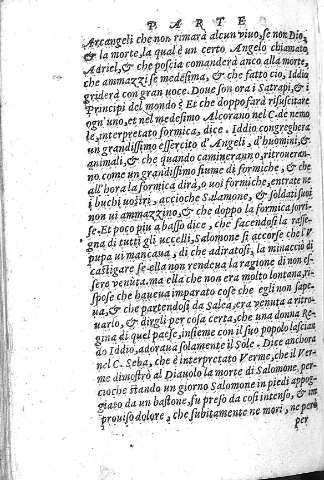 PARTE
Arcangeli che non rimarà alcun viuo, se non Dio,
& la morte, la qual è un certo Angelo chiamato
Adriel, & che poscia comanderà anco alla morte,
che ammazzi se medesima, & che fatto ciò, Iddio
griderà con gran uoce. Doue son ora i Satrapi, & i
Principi del mondo? Et che doppo farà risuscitare
ogn'uno, et nel medesimo Alcorano nel C. de nemo
le, interpretato formica, dice. Iddio congregherà
un grandissimo essercito d'Angeli, d'huomini, &
animali, & che quando camineranno, ritroueran-
no come un grandissimo fiume di formiche, & che
all'hora la formica dirà, o uoi formiche, entrate ne
i buchi uostri, accioche Salamone, & soldati suoi
non ui ammazzino, & che doppo la formica sorri-
se. Et poco piu a basso dice, che facendosi la rasse-
gna di tutti gli uccelli, Salomone si accorse che l'V
pupa ui mancaua, di che adiratosi, la minacciò di
castigare se ella non rendeua la ragione di non es-
sere uenuta. ma ella che non era molto lontana, ri-
spose che haueua imparato cose che egli non sape-
ua, & che partendosi da Salea, era uenuta a ritro-
uarlo, & dirgli per cosa certa, che una donna Re-
gina di quel paese, insieme con il suo popolo lascian
do Iddio, adoraua solamente il Sole. Dice anchora
nel C. Seba, che è interpretato Verme, che il Ver-
me dimostrò al Diauolo la morte di Salomone, per-
cioche stando un giorno Salomone in piedi appog-
giato da un bastone, fu preso da cosi intenso, & im
prouiso dolore, che subitamente ne morì, ne però
per